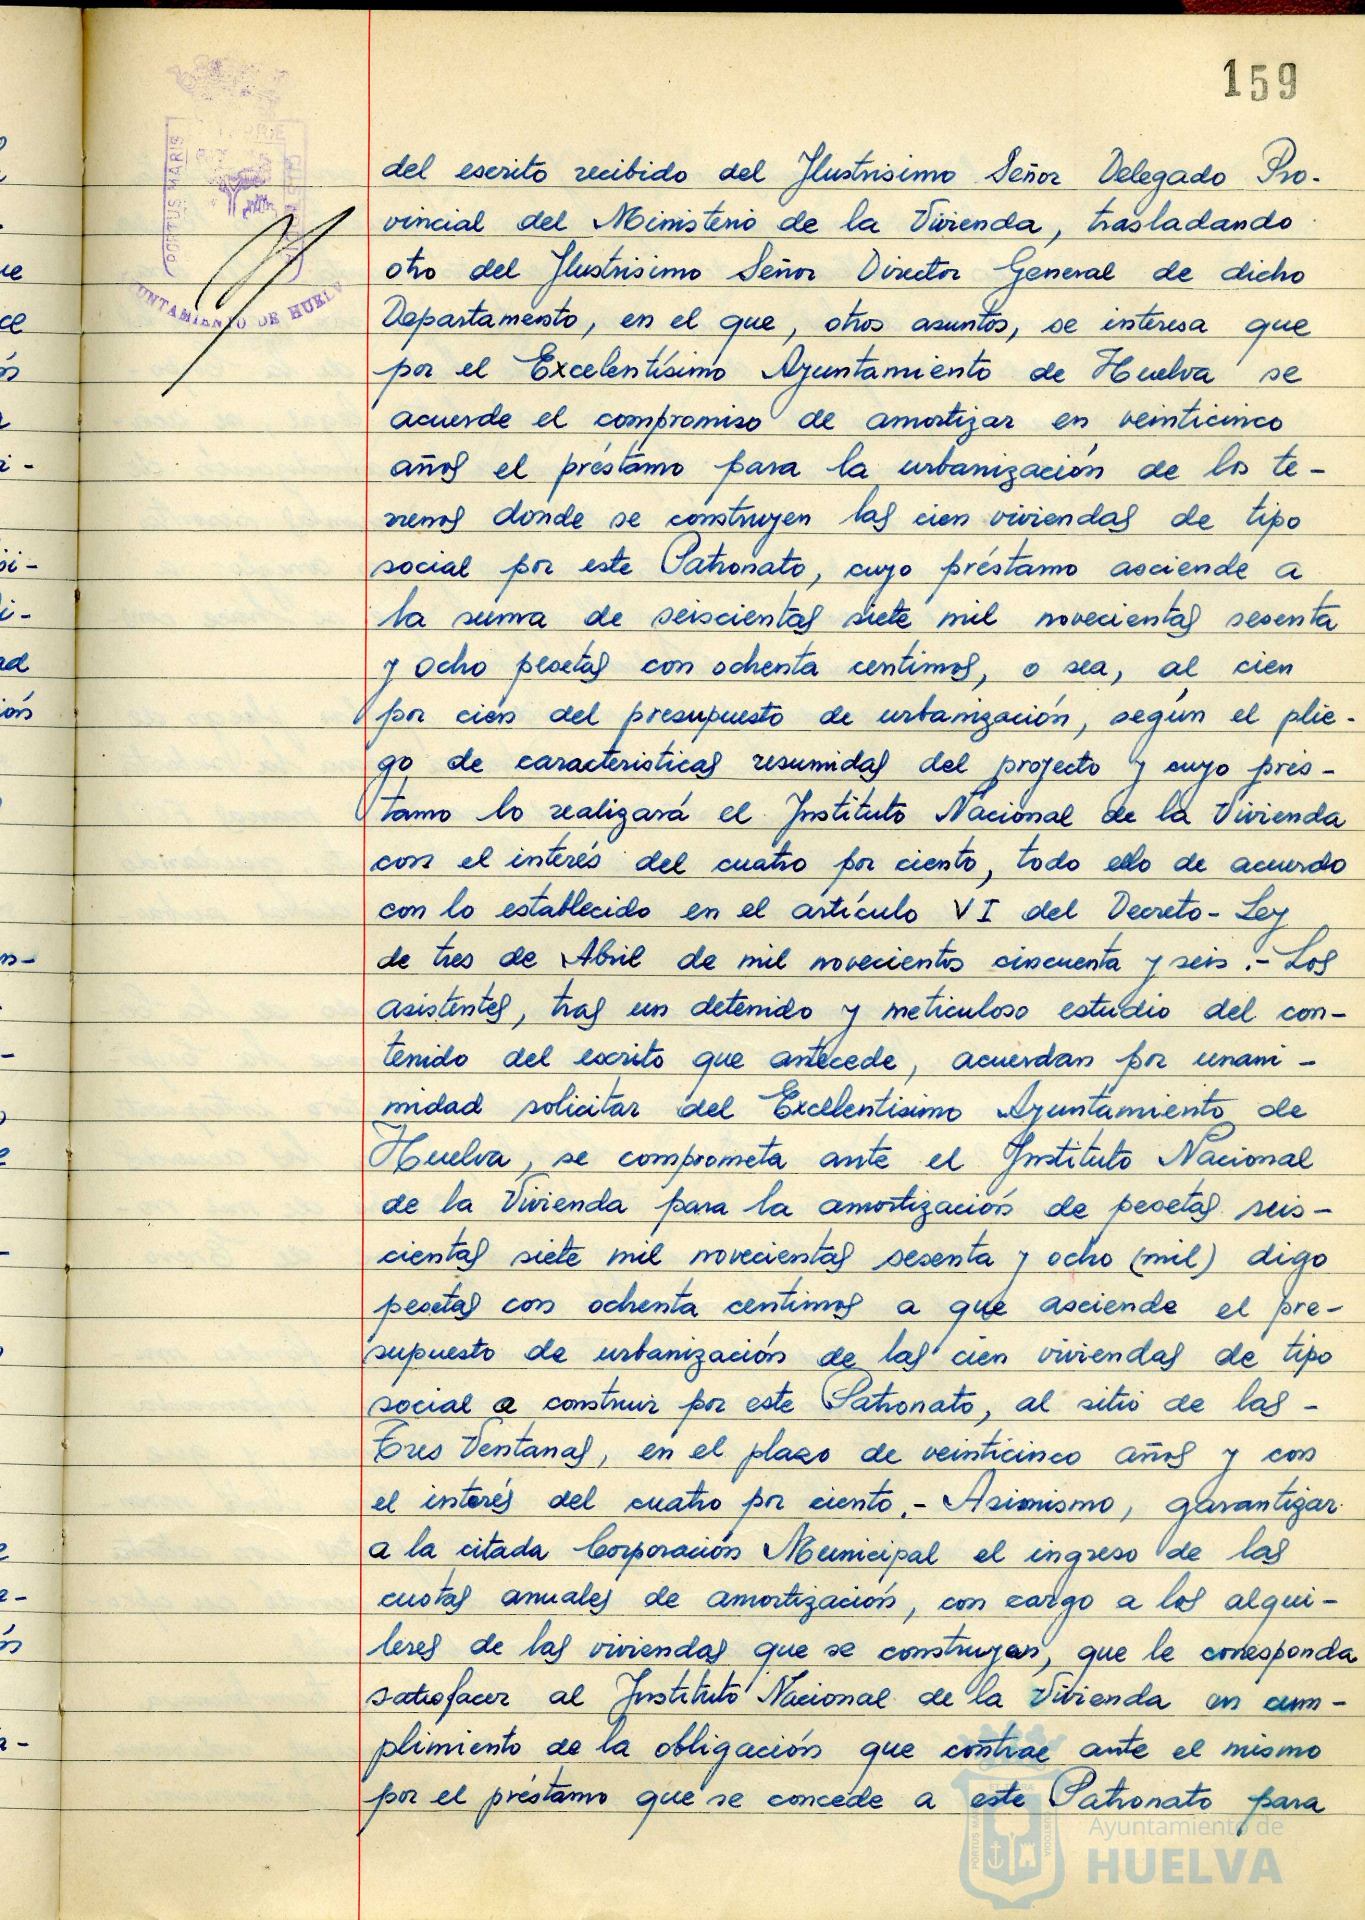 159
PORTUS MARIS
AYUNTAMIENTO DE HUELVA
del escrito recibido del Ilustrisimo Señor Delegado Pro-
vincial del Ministerio de la Vivienda, trasladando
otro del Ilustrisimo Señor Director General de dicho
Departamento, en el que, otros asuntos, se interesa que
por el Excelentísimo Ayuntamiento de Huelva se
acuerde el compromiso de amortizar en veinticinco
años el préstamo para la urbanización de los te-
rrenos donde se construyen las cien viviendas de tipo
social por este Patronato, cuyo préstamo asciende a
la suma de seiscientas siete mil novecientas sesenta
y ocho pesetas con ochenta centimos, o sea, al cien
por cien del presupuesto de urbanización, según el plie-
go de caracteristicas resumidas del projecto y cuyo pres-
tamo lo realizará el Instituto Nacional de la Vivienda
con el interés del cuatro por ciento, todo ello de acuerdo
con lo establecido en el artículo VI del Decreto-Ley
de tres de Abril de mil novecientos cincuenta y seis.- Los
asistentes, tras un detenido y meticuloso estudio del con-
tenido del escrito que antecede, acuerdan por unani-
midad solicitar del Excelentisimo Ayuntamiento de
Huelva, se comprometa ante el Instituto Nacional
de la Vivienda para la amortización de pesetas seis-
cientas siete mil novecientas sesenta y ocho (mil) digo
pesetas con ochenta centimos a que asciende el pre-
supuesto de urbanización de las cien viviendas de tipo
social a construir por este Patronato, al sitio de las -
Tres Ventanas, en el plazo de veinticinco años y con
el interés del cuatro por ciento.- Asimismo, garantizar
a la citada Corporación Municipal el ingreso de las
cuotas anuales de amortización, con cargo a los alqui-
leres de las viviendas que se construyan, que le corresponda
satisfacer al Instituto Nacional de la Vivienda en cum-
plimiento de la obligación que contrae ante el mismo
por el préstamo que se concede a este Patronato para
Ayuntamiento de
HUELVA